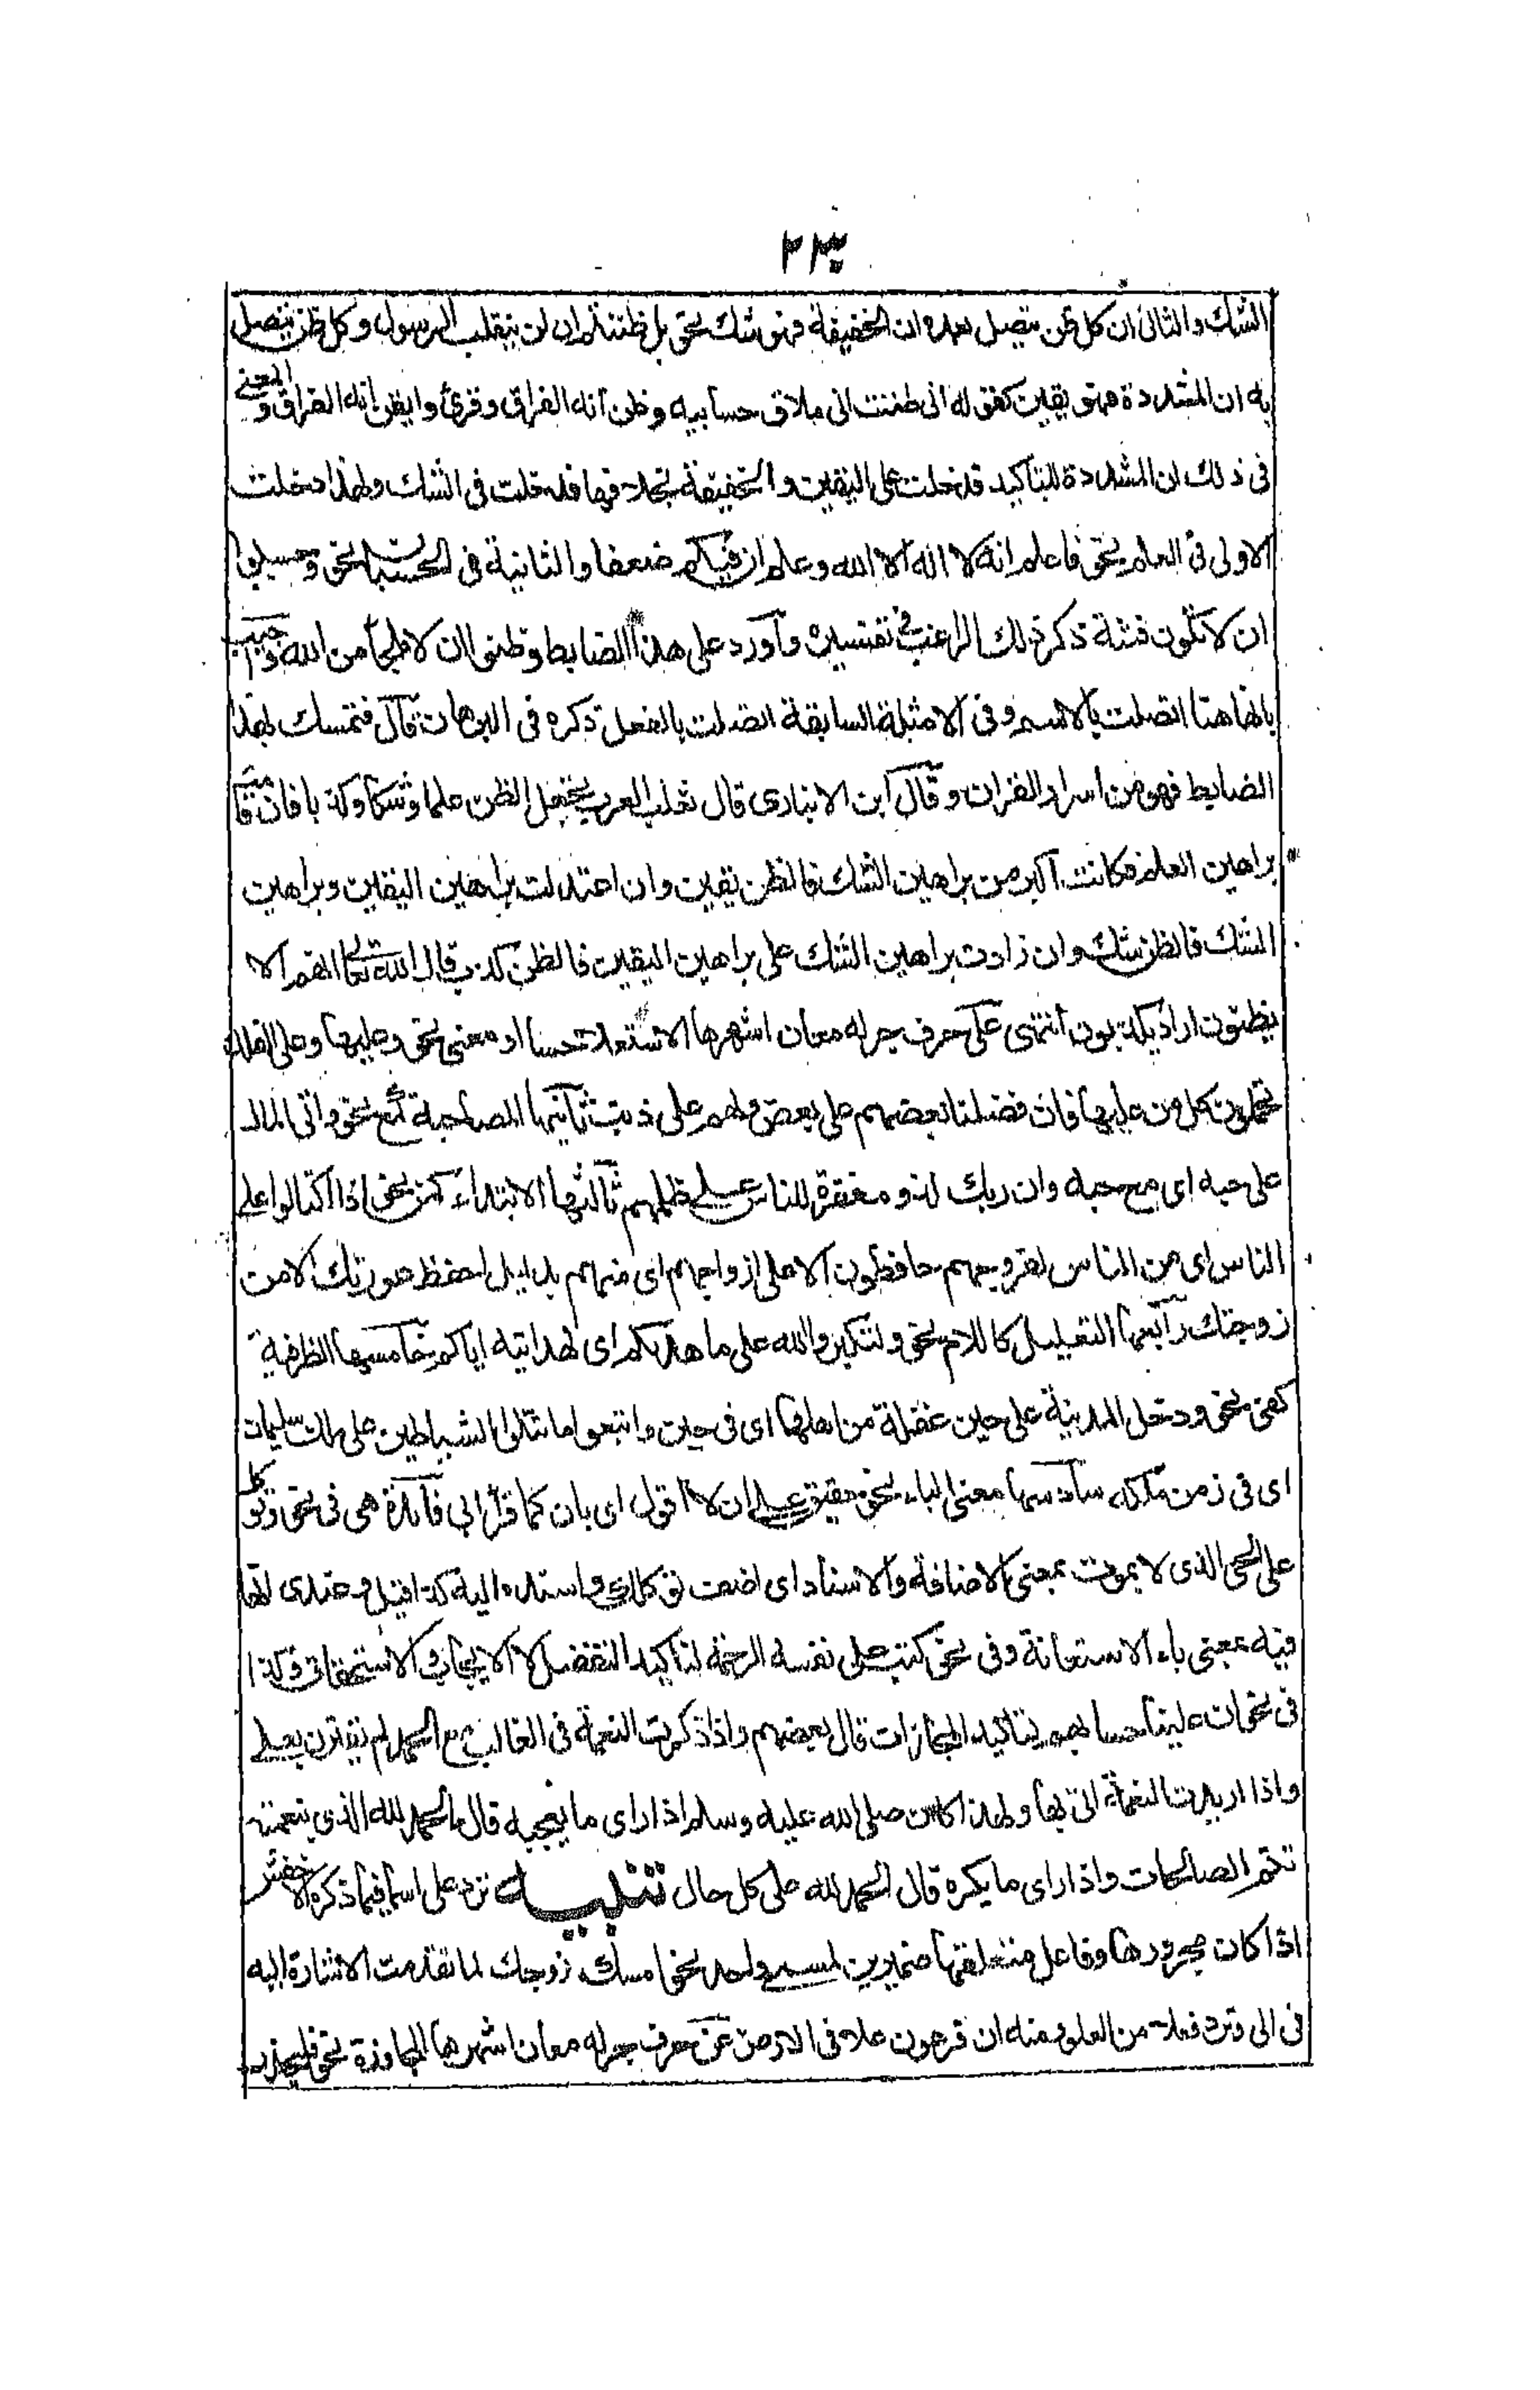 ٢٣٠
الشك والثانی ان كل ظن يتصل بعده ان الخفيفة فهو شك نحو بل ظننتم ان لن ينقلب الرسول وكل ظن يتصل
به ان المشددة فهو يقين كقوله انی ظننت انی ملاق حسابيه وظن انه الفراق وقرئ وايقن انه الفراق والمعنی
فی ذلك ان المشددة للتأكيد فدخلت علی اليقين والخفيفة بخلافها فدخلت فی الشك ولهذا دخلت
الاولی فی العلم نحو فاعلم انه لا اله الا الله وعلم ان فيكم ضعفا والثانية فی الحسبان نحو وحسبوا
ان لا تكون فتنة ذكر ذلك الراغب فی تفسيره وأورد علی هذا الضابط وظنوا ان لا ملجأ من الله واجيب
بانها هنا اتصلت بالاسم وفی الامثلة السابقة اتصلت بالفعل ذكره فی البرهان قال فتمسك بهذا
الضابط فهو من اسرار القران وقال ابن الانباری قال ثعلب العرب تجعل الظن علما وشكا وكذبا فان قامت
براهين العلم فكانت أكبر من براهين الشك فالظن يقين وان اعتدلت براهين اليقين وبراهين
الشك فالظن شك وان زادت براهين الشك علی براهين اليقين فالظن كذب قال الله تعالی ان هم الا
يظنون اراد يكذبون انتهی علی حرف جر له معان اشهرها الاستعلاء حسا او معنی نحو وعليها وعلی الفلك
تحملون كل من عليها فان فضلنا بعضهم علی بعض ولهم علی ذنب ثانيها المصاحبة كمع نحو واتی المال
علی حبه ای مع حبه وان ربك لذو مغفرة للناس علی ظلمهم ثالثها الابتداء كمن نحو اذا اكتالوا علی
الناس ای من الناس لفروجهم حافظون الا علی ازواجهم ای منهم بدليل احفظ عورتك الا من
زوجتك رابعها التعليل كاللام نحو ولتكبروا الله علی ما هدىكم ای لهدايته اياكم خامسها الظرفية
كفی نحو ودخل المدينة علی حين غفلة من اهلها ای فی حين واتبعوا ما تتلوا الشياطين علی ملك سليمان
ای فی زمن ملكه سادسها معنی الباء نحو حقيق علی ان لا اقول ای بان كما قرأ ابی فائدة هی فی نحو وتوكل
علی الحی الذی لا يموت بمعنی الاضافة والاسناد ای اضف توكلك واسنده اليه كذا قيل وعندی انها
فيه بمعنی باء الاستعانة وفی نحو كتب علی نفسه الرحمة لتأكيد التفضل لا الايجاب والاستحقاق وكذا
فی نحو ان علينا حسابهم لتأكيد المجازات قال بعضهم واذا ذكرت النعمة فی الغالب مع الحمد لم تقترن بعلی
واذا اريدت النقمة اتی بها ولهذا كان صلی الله عليه وسلم اذا رای ما يعجبه قال الحمد لله الذی بنعمته
تتم الصالحات واذا رای ما يكره قال الحمد لله علی كل حال تنبيه ترد علی اسما فيما ذكره الاخفش
اذا كان مجرورها وفاعل متعلقها ضميرين لمسمی واحد نحو امسك زوجك لما تقدمت الاشارة اليه
فی الی وترد فعلا من العلو ومنه ان فرعون علا فی الارض عن حرف جر له معان اشهرها المجاوزة نحو فليحذر